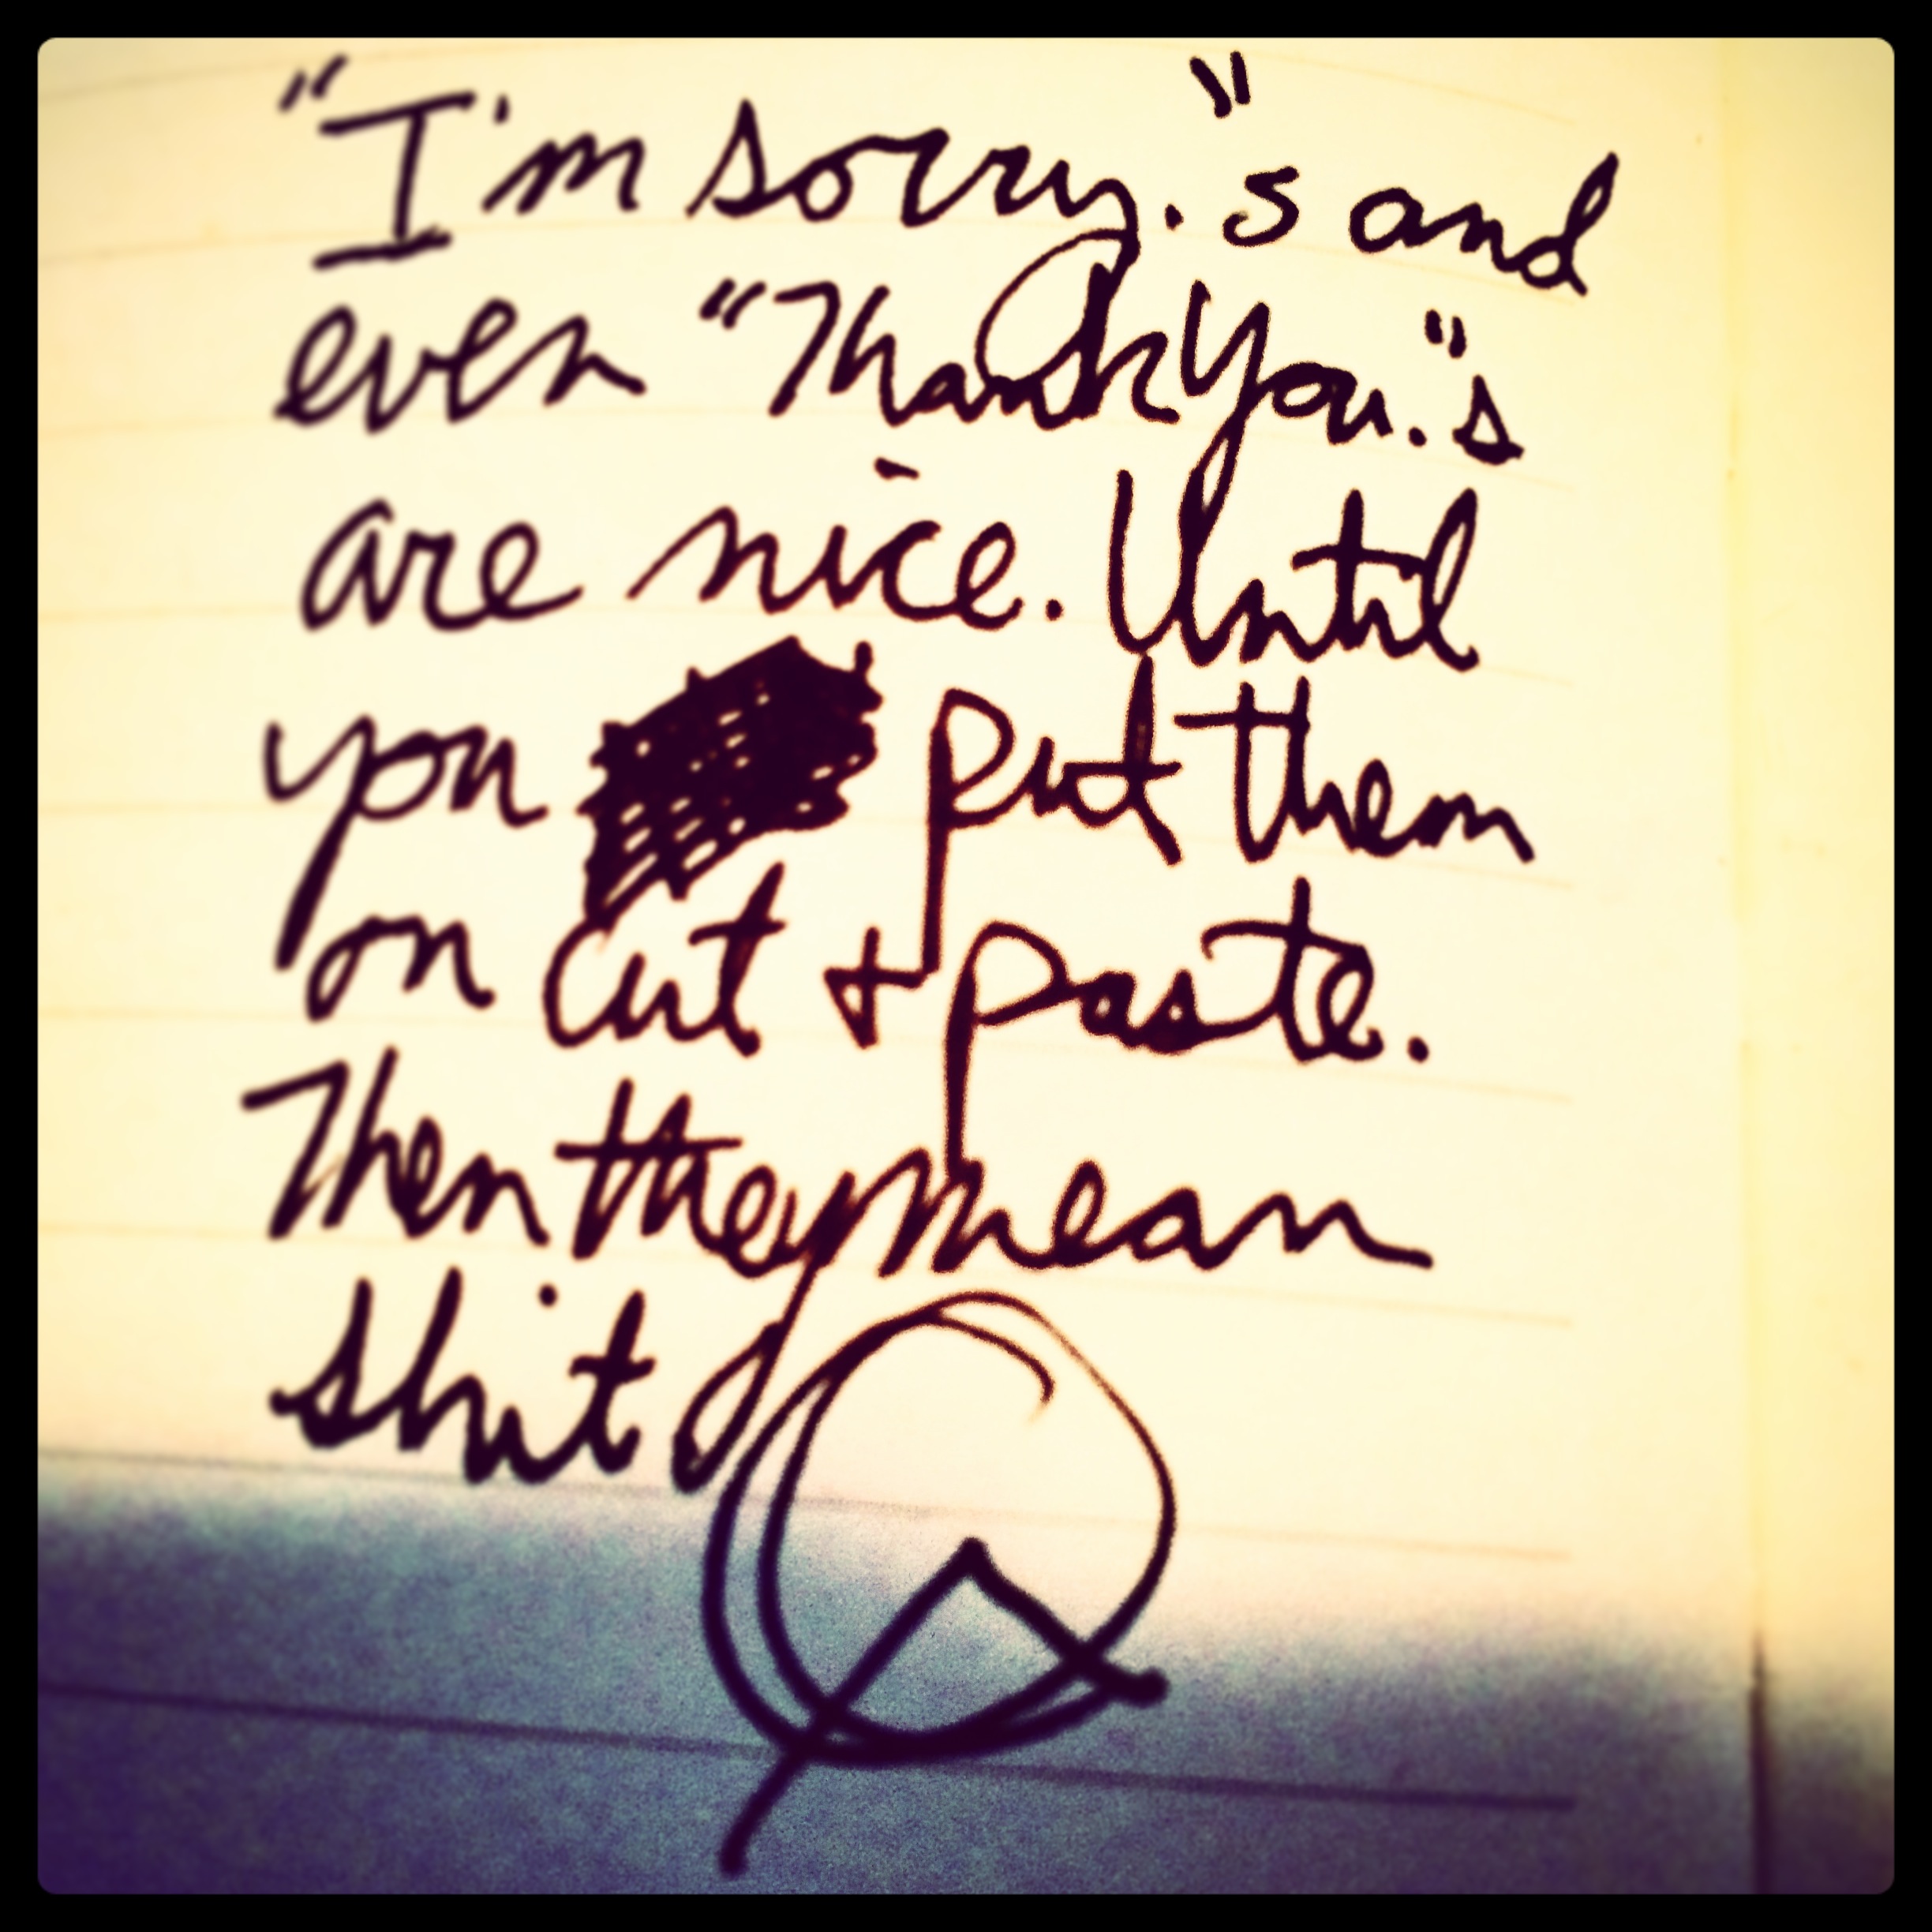 "I'm sorry."s and
even "Thank You."s
are nice. Until
you put them
on cut + paste.
Then they mean
shit